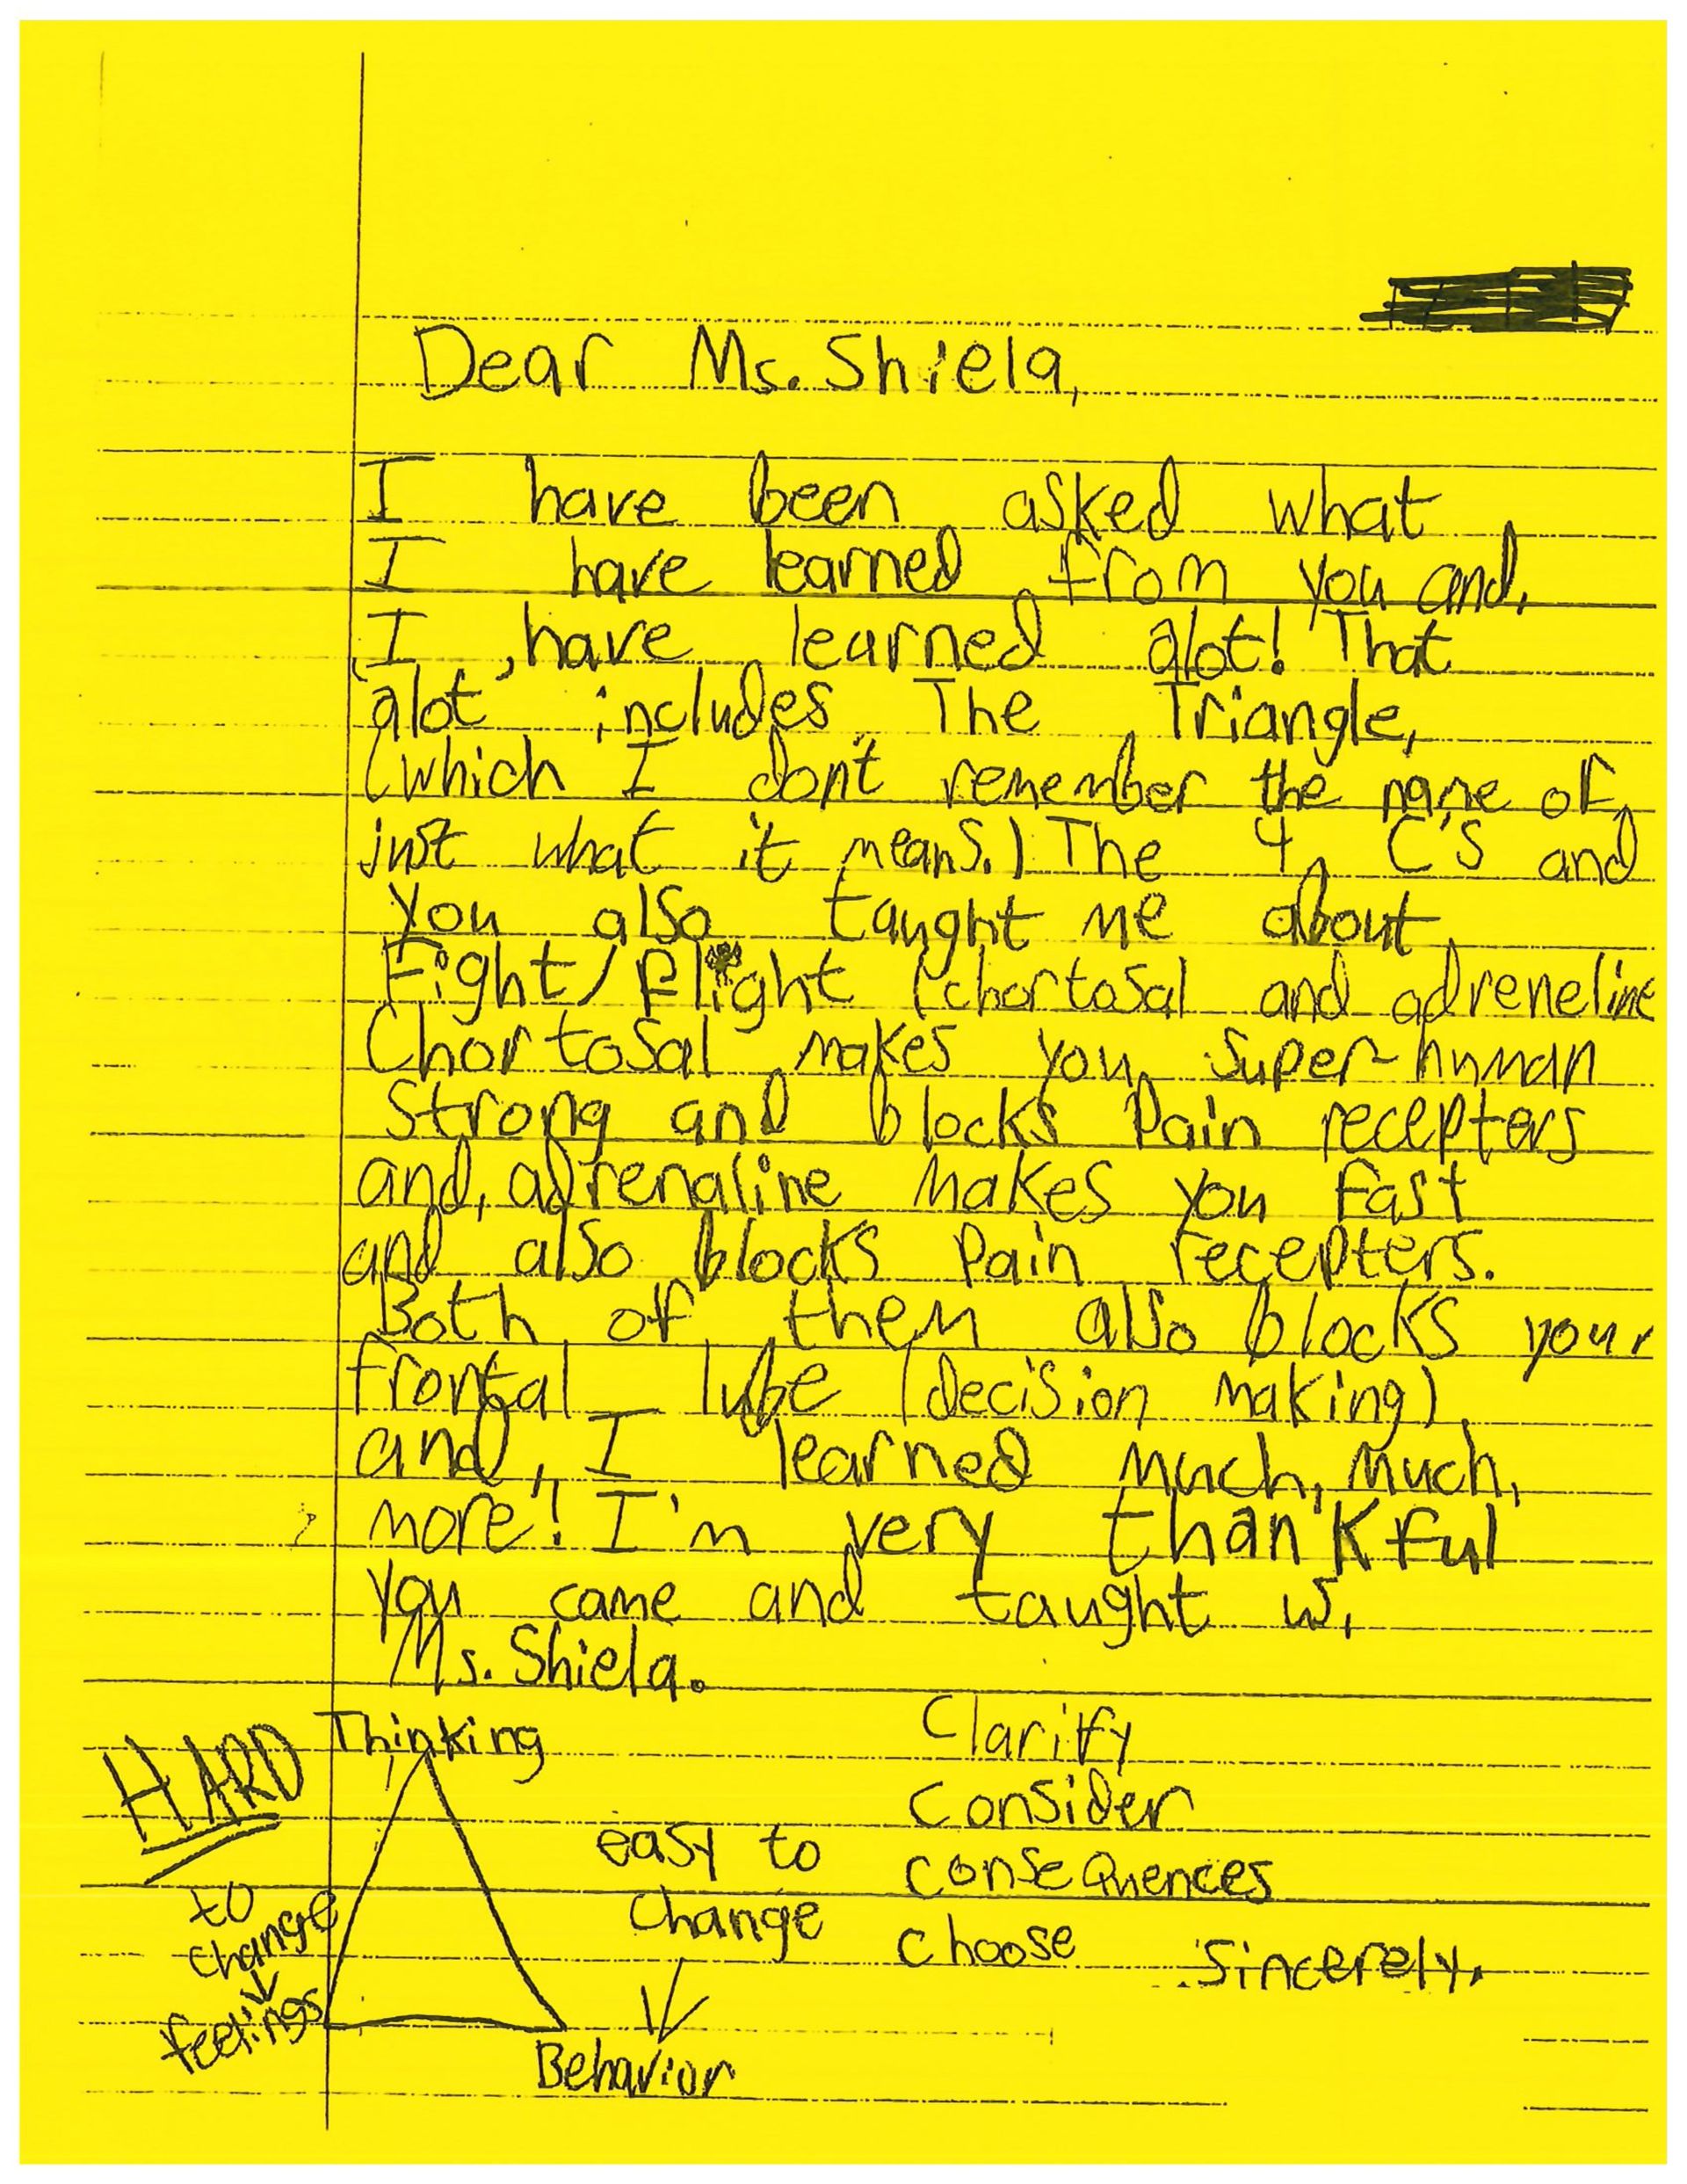 Dear Ms. Shiela,
I have been asked what
I have learned from you and,
I, have learned alot! That
alot includes The Triangle,
(which I don't remember the name of,
just what it means.) The 4 C's and
you also taught me about
Fight/Flight (chortosal and adreneline
Chortosal makes you super-human
strong and blocks Pain recepters
and, adrenaline makes you fast
and also blocks Pain recepters.
Both of them also blocks your
frontal lube (decision making)
and, I learned much, much,
more! I'm very thankful
you came and taught us,
Ms. Shiela.
HARD
to
change
feelings
Thinking
easy to
change
Behavior
Clarify
consider
consequences
choose
Sincerely,